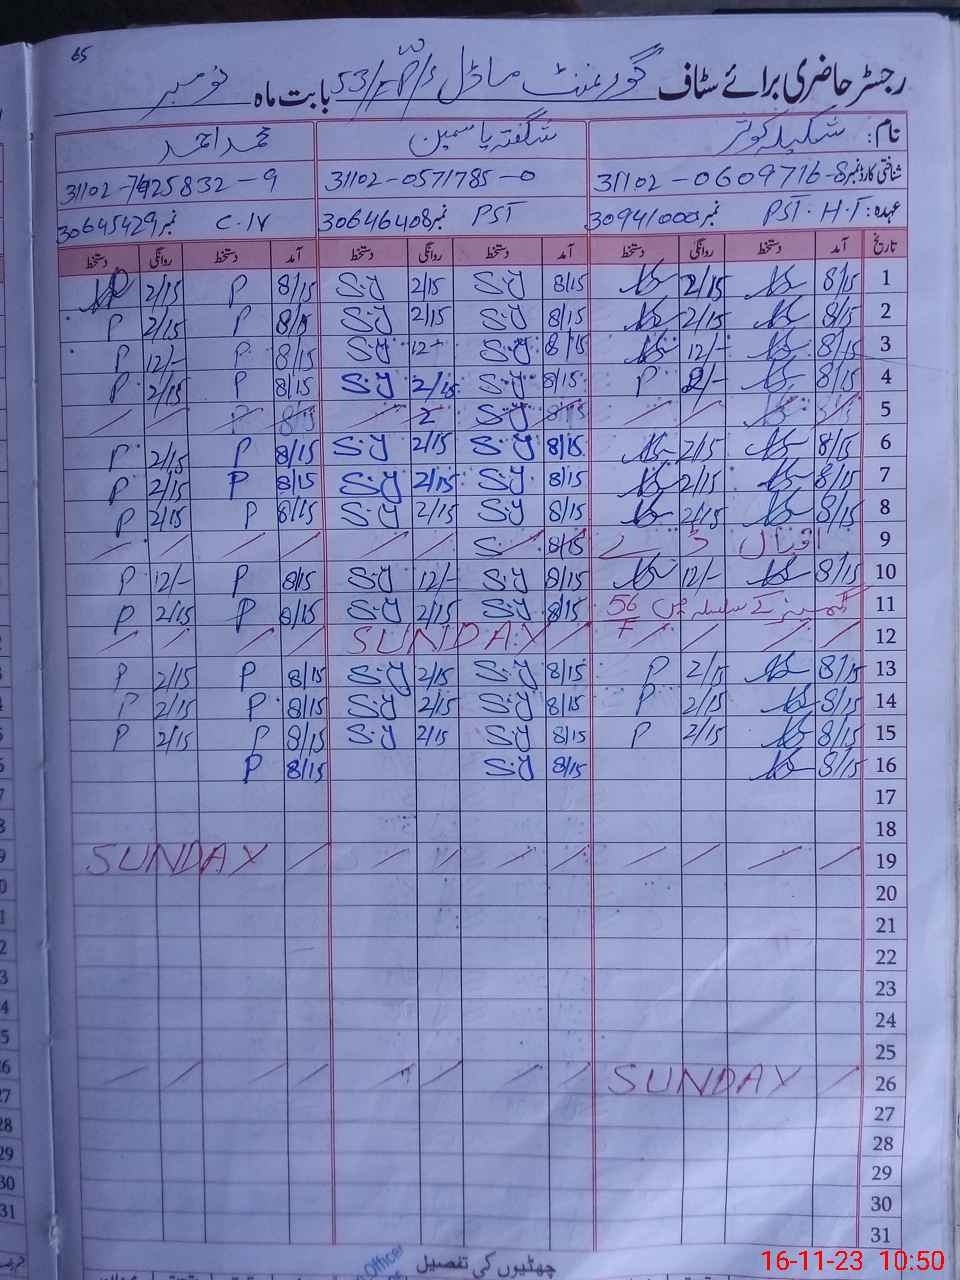 65
رجسٹر حاضری برائے سٹاف گورنمنٹ ماڈل 53/ بابت ماہ نومبر
نام: شکیلہ کوثر شگفتہ یاسمین محمد احمد
شناختی کارڈ نمبر 31102-0609716-8 31102-0571785-0 31102-7425832-9
عہدہ: PST. H.T نمبر 30941000 PST نمبر 30646408 C.IV نمبر 30645429
تاریخ آمد دستخط روانگی دستخط آمد دستخط روانگی دستخط آمد دستخط روانگی دستخط
1 8/15 2/15 8/15 S.Y 2/15 S.Y 8/15 P 2/15
2 8/15 2/15 8/15 S.Y 2/15 S.Y 8/15 P 2/15 P
3 8/15 12/- 8/15 S.Y 12- S.Y 8/15 P 12/- P
4 8/15 2/- P 8/15 S.Y 2/15 S.Y 8/15 P 2/15 P
5 8/15 S.Y 2 8/15 P
6 8/15 2/15 8/15 S.Y 2/15 S.Y 8/15 P 2/15 P
7 8/15 2/15 8/15 S.Y 2/15 S.Y 8/15 P 2/15 P
8 8/15 2/15 8/15 S.Y 2/15 S.Y 8/15 P 2/15 P
9 اقبال ڈے 8/15 S
10 8/15 12/- 8/15 S.Y 12/- S.Y 8/15 P 12/- P
11 کے سلسلہ میں 56 8/15 S.Y 2/15 S.Y 8/15 P 2/15 P
12 SUNDAY
13 8/15 2/15 P 8/15 S.Y 2/15 S.Y 8/15 P 2/15 P
14 8/15 2/15 P 8/15 S.Y 2/15 S.Y 8/15 P 2/15 P
15 8/15 2/15 P 8/15 S.Y 2/15 S.Y 8/15 P 2/15 P
16 8/15 8/15 S.Y 8/15 P
17
18
19 SUNDAY
20
21
22
23
24
25
26 SUNDAY
27
28
29
30
31
چھٹیوں کی تفصیل
Officer
16-11-23 10:50